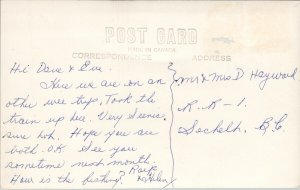 POST CARD
MADE IN CANADA
CORRESPONDENCE
ADDRESS
Hi Dave & Eve.
Here we are on an
other wee trip, Took the
train up here. Very Scenic,
sure hot. Hope you are
both O.K See you
sometime next month.
How is the fishing?
& Helen
Mr & Mrs D Hayward
R.R-1.
Sechelt, B.C.